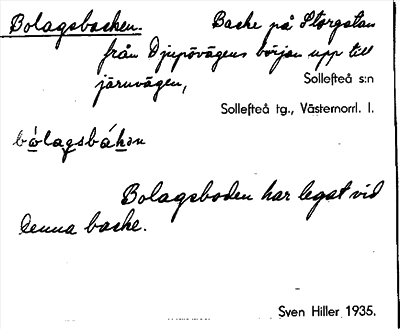 Bolagsbacken. Backe på Storgatan
från Djupövägens början upp till
järnvägen,
Sollefteå s:n
Sollefteå tg., Västernorrl. l.
Bolagsboden har legat vid
denna backe.
Sven Hiller 1935.